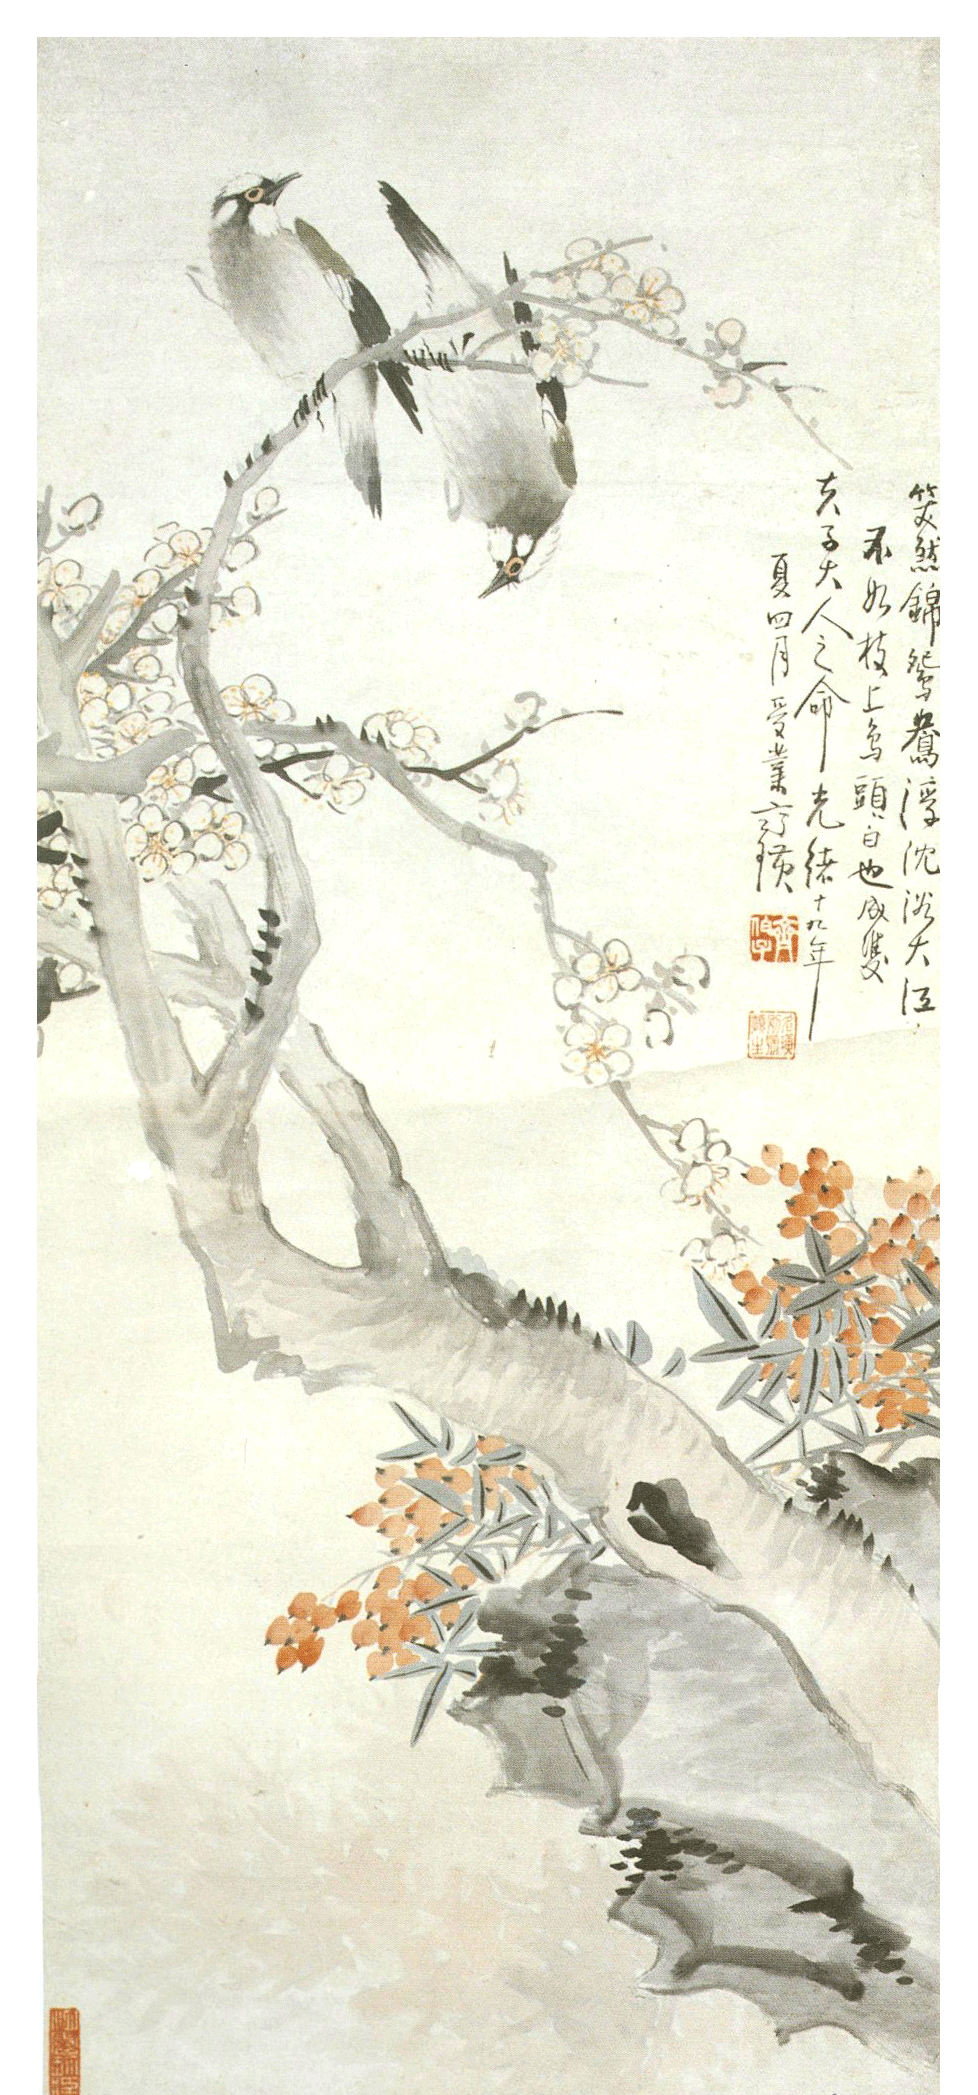 笑煞錦鴛鴦浮沈浴大江
不如枝上鳥頭白也成雙
夫子大人之命光緒十九年
夏四月受業齊璜